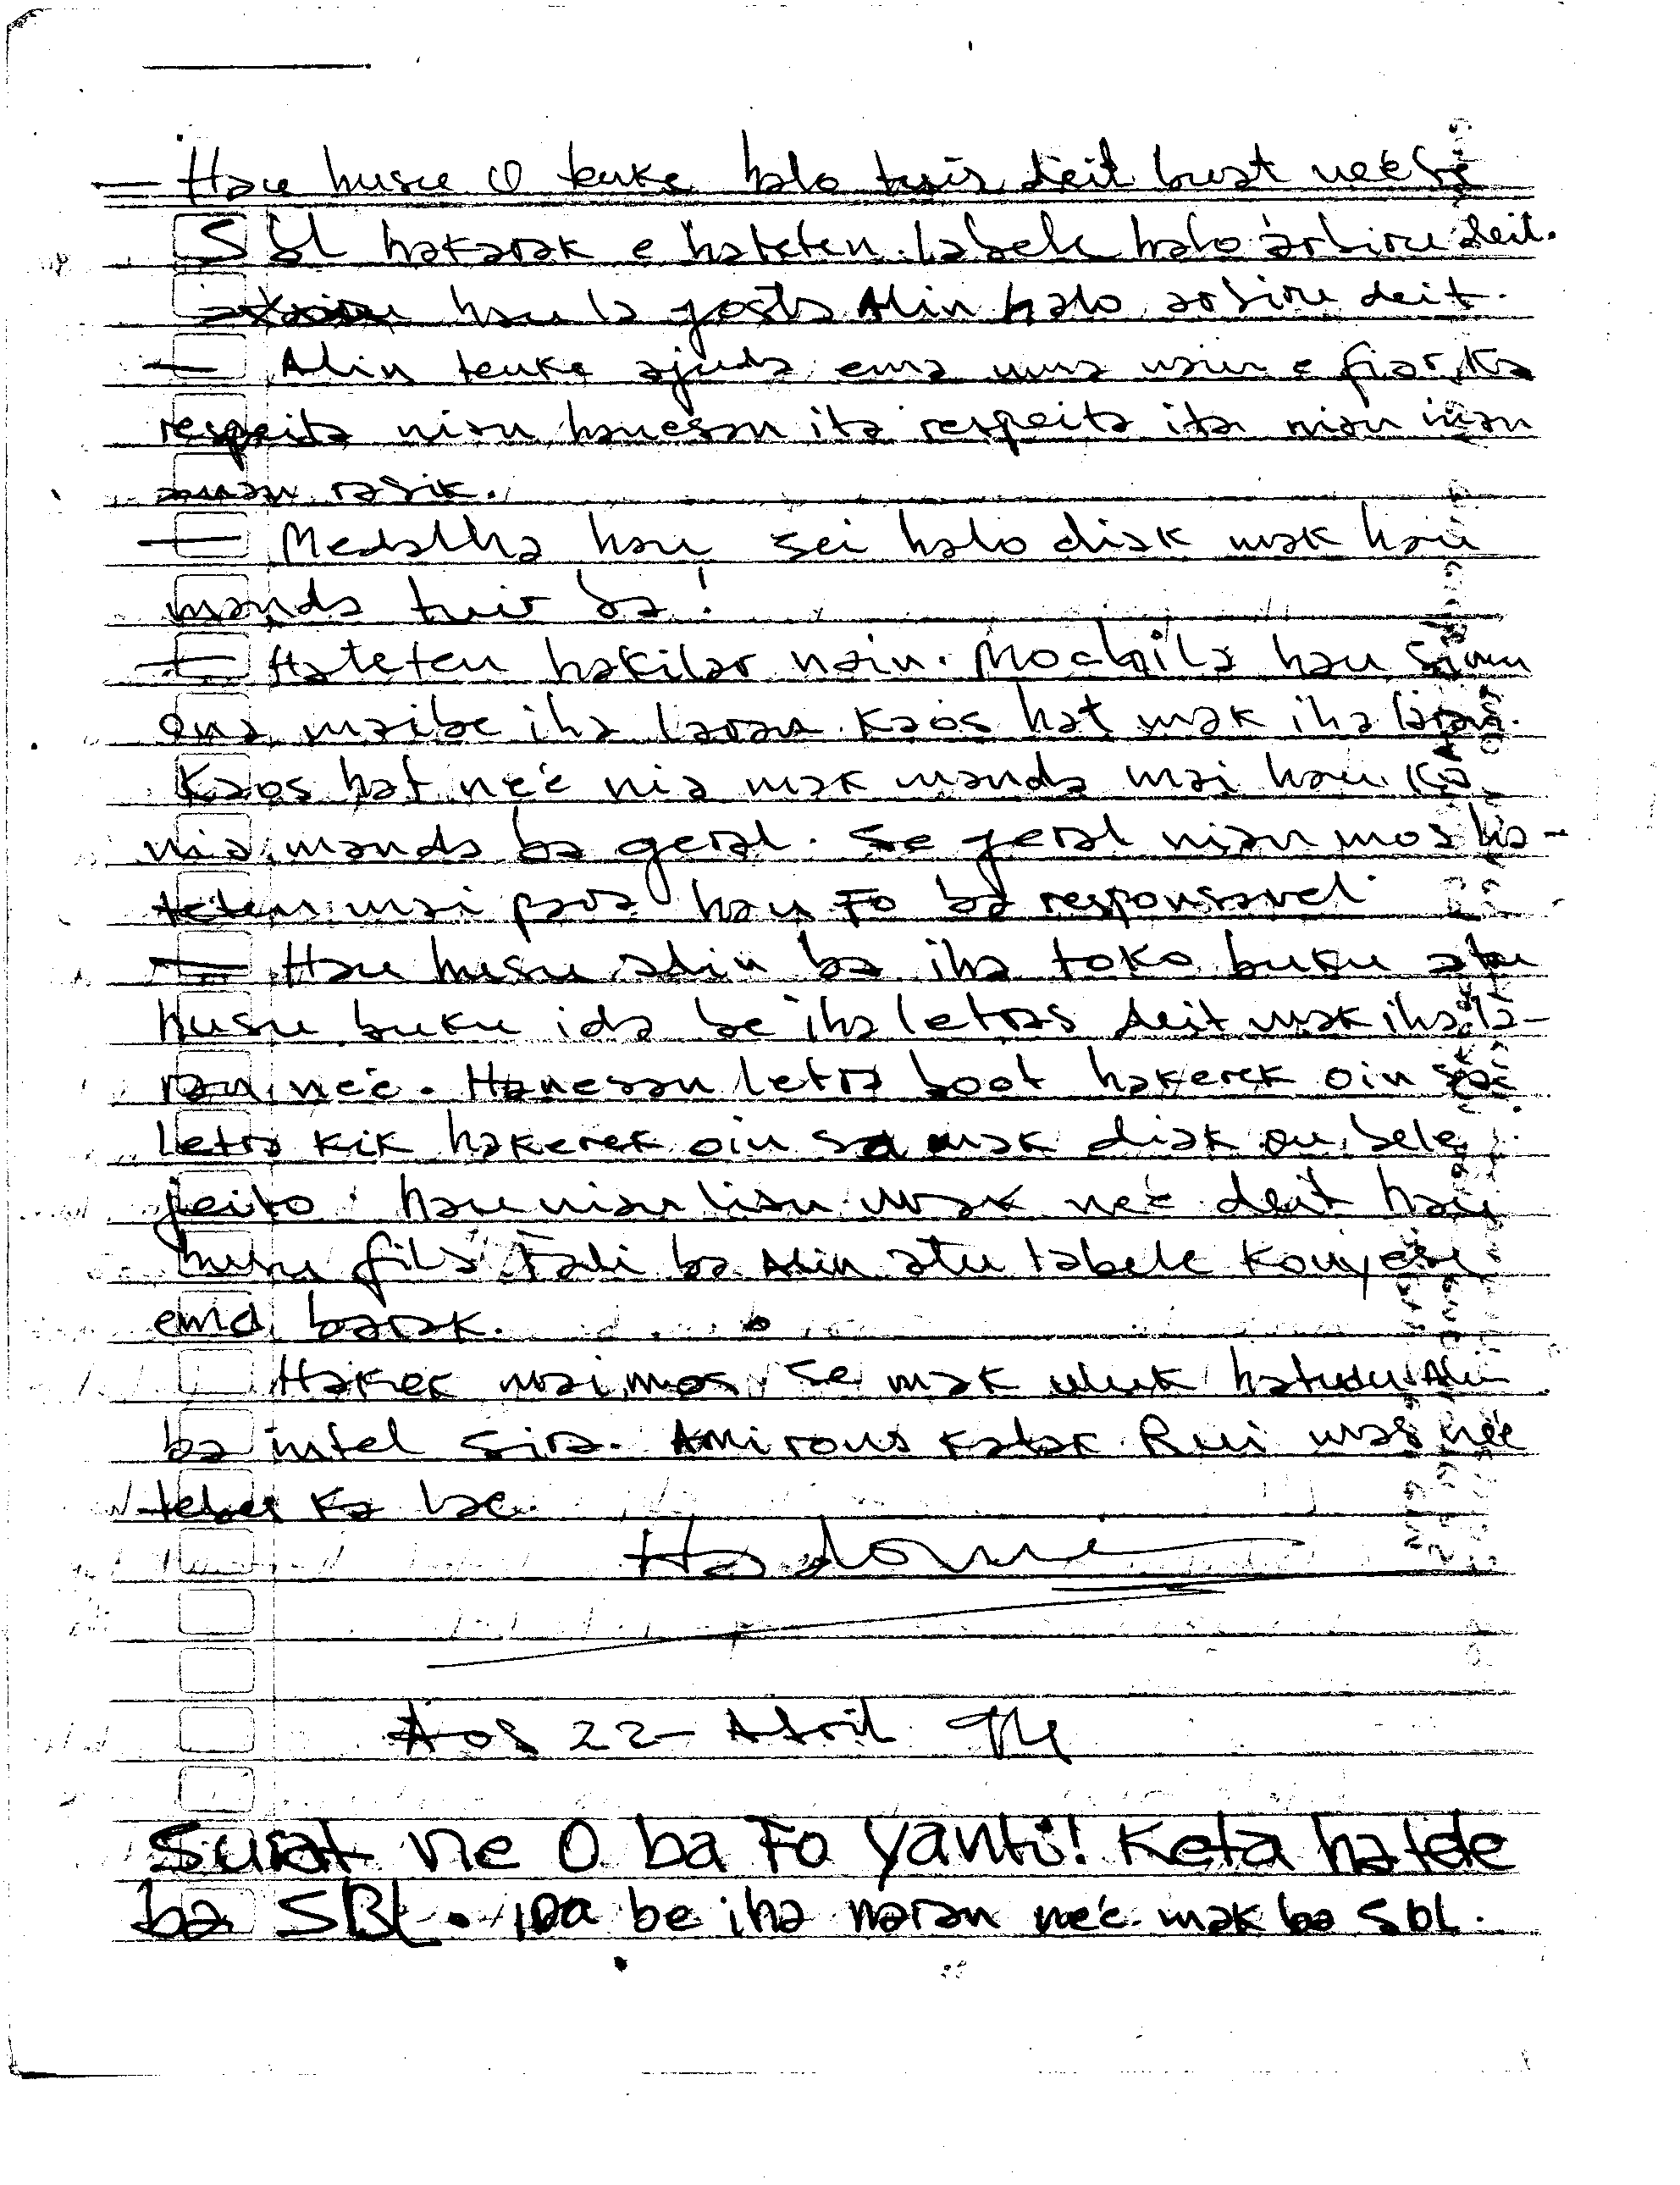 — Hau husu O tenke halo tuir deit buat neébé
SBL hakarak e hateten. Labele halo arbiru deit.
hau la gosta Alin halo arbiru deit.
— Alin tenke ajuda ema uma nain e fiar, Ka
respeita nian hanesan ita respeita ita nian inan
aman rasik.
— Medalha hau sei halo diak mak hau
manda tuir ba!
— Hateten hakilar nain. Mochila hau simu
ona maibe iha laran kaos hat mak iha laran.
Kaos hat neé nia mak manda mai hau Ka
nia manda ba geral. Se geral nian mos ha-
teten mai para hau Fo ba responsavel.
— Hau husu alin ba iha toko buku atu
husu buku ida be iha letras deit mak iha la-
ran neé. Hanesan letra boot hakerek oin sa
letra kik hakerek oin sa mak diak ou bele
jeito. hau nian lian mak neé deit hau
husu fila Fali ba Alin atu labele Konyese
ema barak.
Hakerek mai mos, se mak uluk hatudu Alin
ba intel sira. Ami rona katak Rui mas neé
tebes Ka lae.
Hadomi
Aos 22 - Abril 94
Surat ne O ba Fo Yanti! Keta hatete
ba SBL. IDA be iha naran neé mak ba SBL.